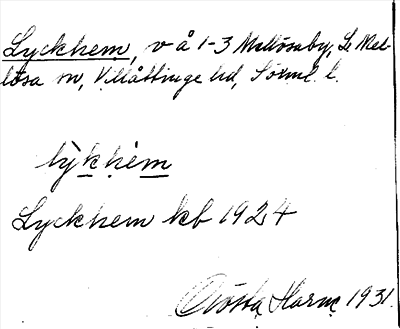 Lyckhem, v å 1-3 Mellösaby, L. Mel-
lösa sn, Villåttinge hd, Sörml. l.
lỳkhèm
Lyckhem kb 1924
Gösta Harne 1931